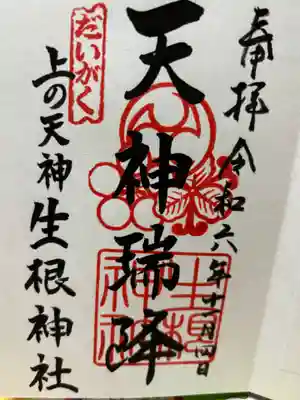 奉拝 令和六年十一月四日
天神瑞降
だいがく
上の天神 生根神社
生根神社